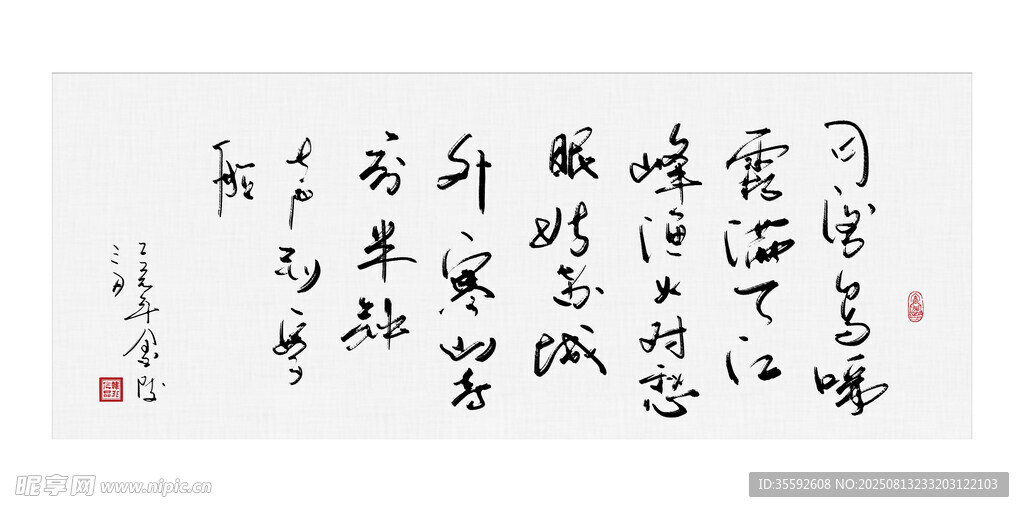 月落乌啼
霜满天江
峰渔火对愁
眠姑苏城
外寒山寺
夜半钟
声到客
船
年金陵
三月
昵享网 www.nipic.cn
ID:35592608 NO:20250813233203122103